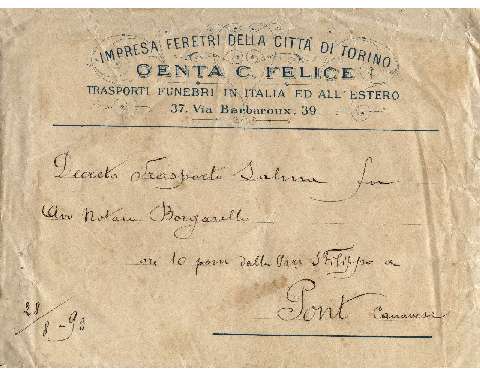 IMPRESA FERETRI DELLA CITTÀ DI TORINO
GENTA C. FELICE
TRASPORTI FUNEBRI IN ITALIA ED ALL'ESTERO
37. Via Barbaroux. 39
Decreto Trasporto Salma fu
Avv Notaio Borgarello
ore 10 pom dalla Parr S Filippo a
Pont Canavese
28/8-93